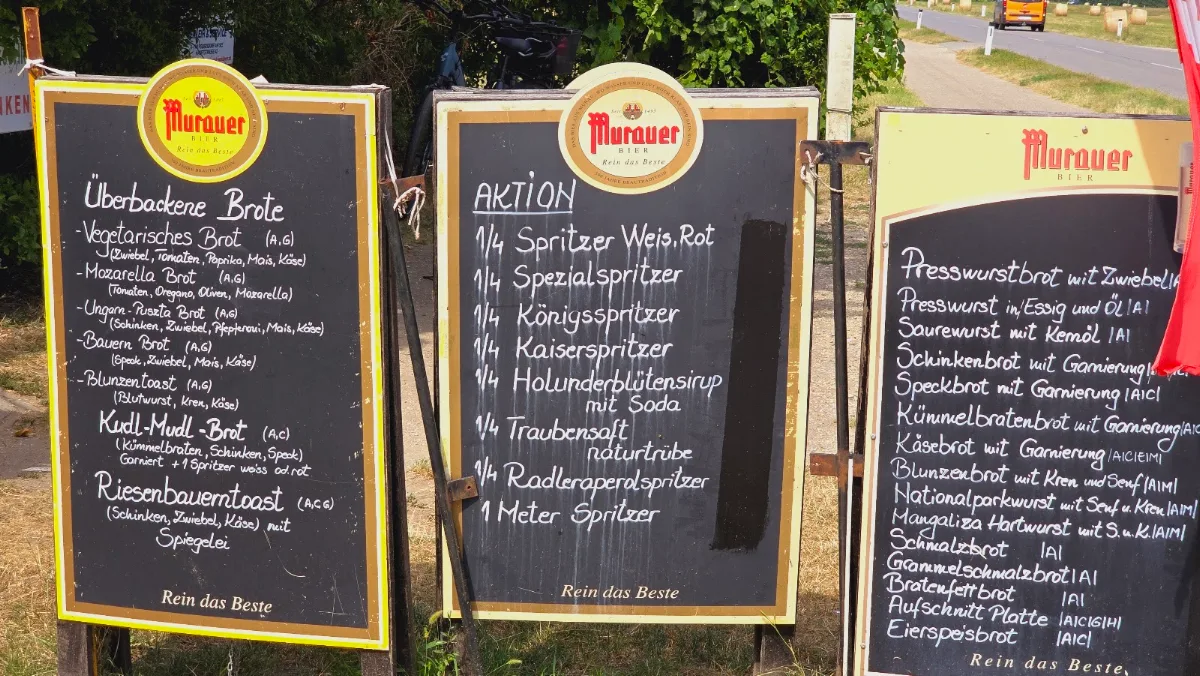 Murauer
BIER
Rein das Beste
Überbackene Brote
-Vegetarisches Brot (A,G)
(Zwiebel, Tomaten, Paprika, Mais, Käse)
-Mozarella Brot (A,G)
(Tomaten, Oregano, Oliven, Mozarella)
-Ungarn-Puszta Brot (A,G)
(Schinken, Zwiebel, Pfepferoni, Mais, Käse)
-Bauern Brot (A,G)
(Speck, Zwiebel, Mais, Käse)
-Blunzentoast (A,G)
(Blutwurst, Kren, Käse)
Kudl-Mudl-Brot (A,C)
(Kümmelbraten, Schinken, Speck)
Garniert + 1 Spritzer weiss od. rot
Riesenbauerntoast (A,C,G)
(Schinken, Zwiebel, Käse) mit
Spiegelei
Rein das Beste
Murauer
BIER
Rein das Beste
AKTION
1/4 Spritzer Weis, Rot
1/4 Spezialspritzer
1/4 Königsspritzer
1/4 Kaiserspritzer
1/4 Holunderblütensirup
mit Soda
1/4 Traubensaft
naturtrübe
1/4 Radleraperolspritzer
1 Meter Spritzer
Rein das Beste
Murauer
BIER
Presswurstbrot mit Zwiebel
Presswurst in/Essig und Öl |A|
Saurewurst mit Kernöl |A|
Schinkenbrot mit Garnierung
Speckbrot mit Garnierung |A|C|
Kümmelbratenbrot mit Garnierung |A|C
Käsebrot mit Garnierung |A|C|E|M|
Blunzenbrot mit Kren und Senf |A|M|
Nationalparkwurst mit Senf u. Kren |A|M|
Mangaliza Hartwurst mit S. u. K. |A|M|
Schmalzbrot |A|
Grammelschmalzbrot |A|
Bratenfettbrot |A|
Aufschnitt Platte |A|C|G|H|
Eierspeisbrot |A|C|
Rein das Beste